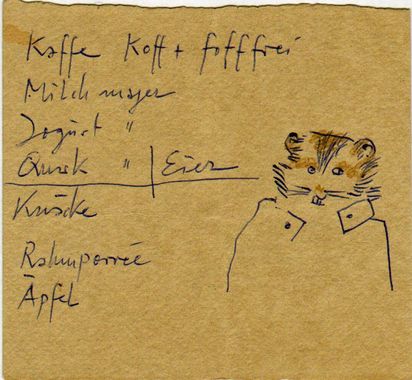 Kaffe Koff + fofffrei
Milch mager
Jogurt "
Quark " | Eier
Knäcke
Rahmporrée
Äpfel